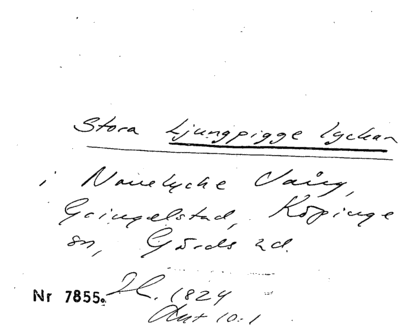 Stora Ljungpigge lyckan
i Navelycke Vång,
Gringelstad, Köpinge
sn, Gärds hd.
Nr 7855. 1824
Akt 10:1